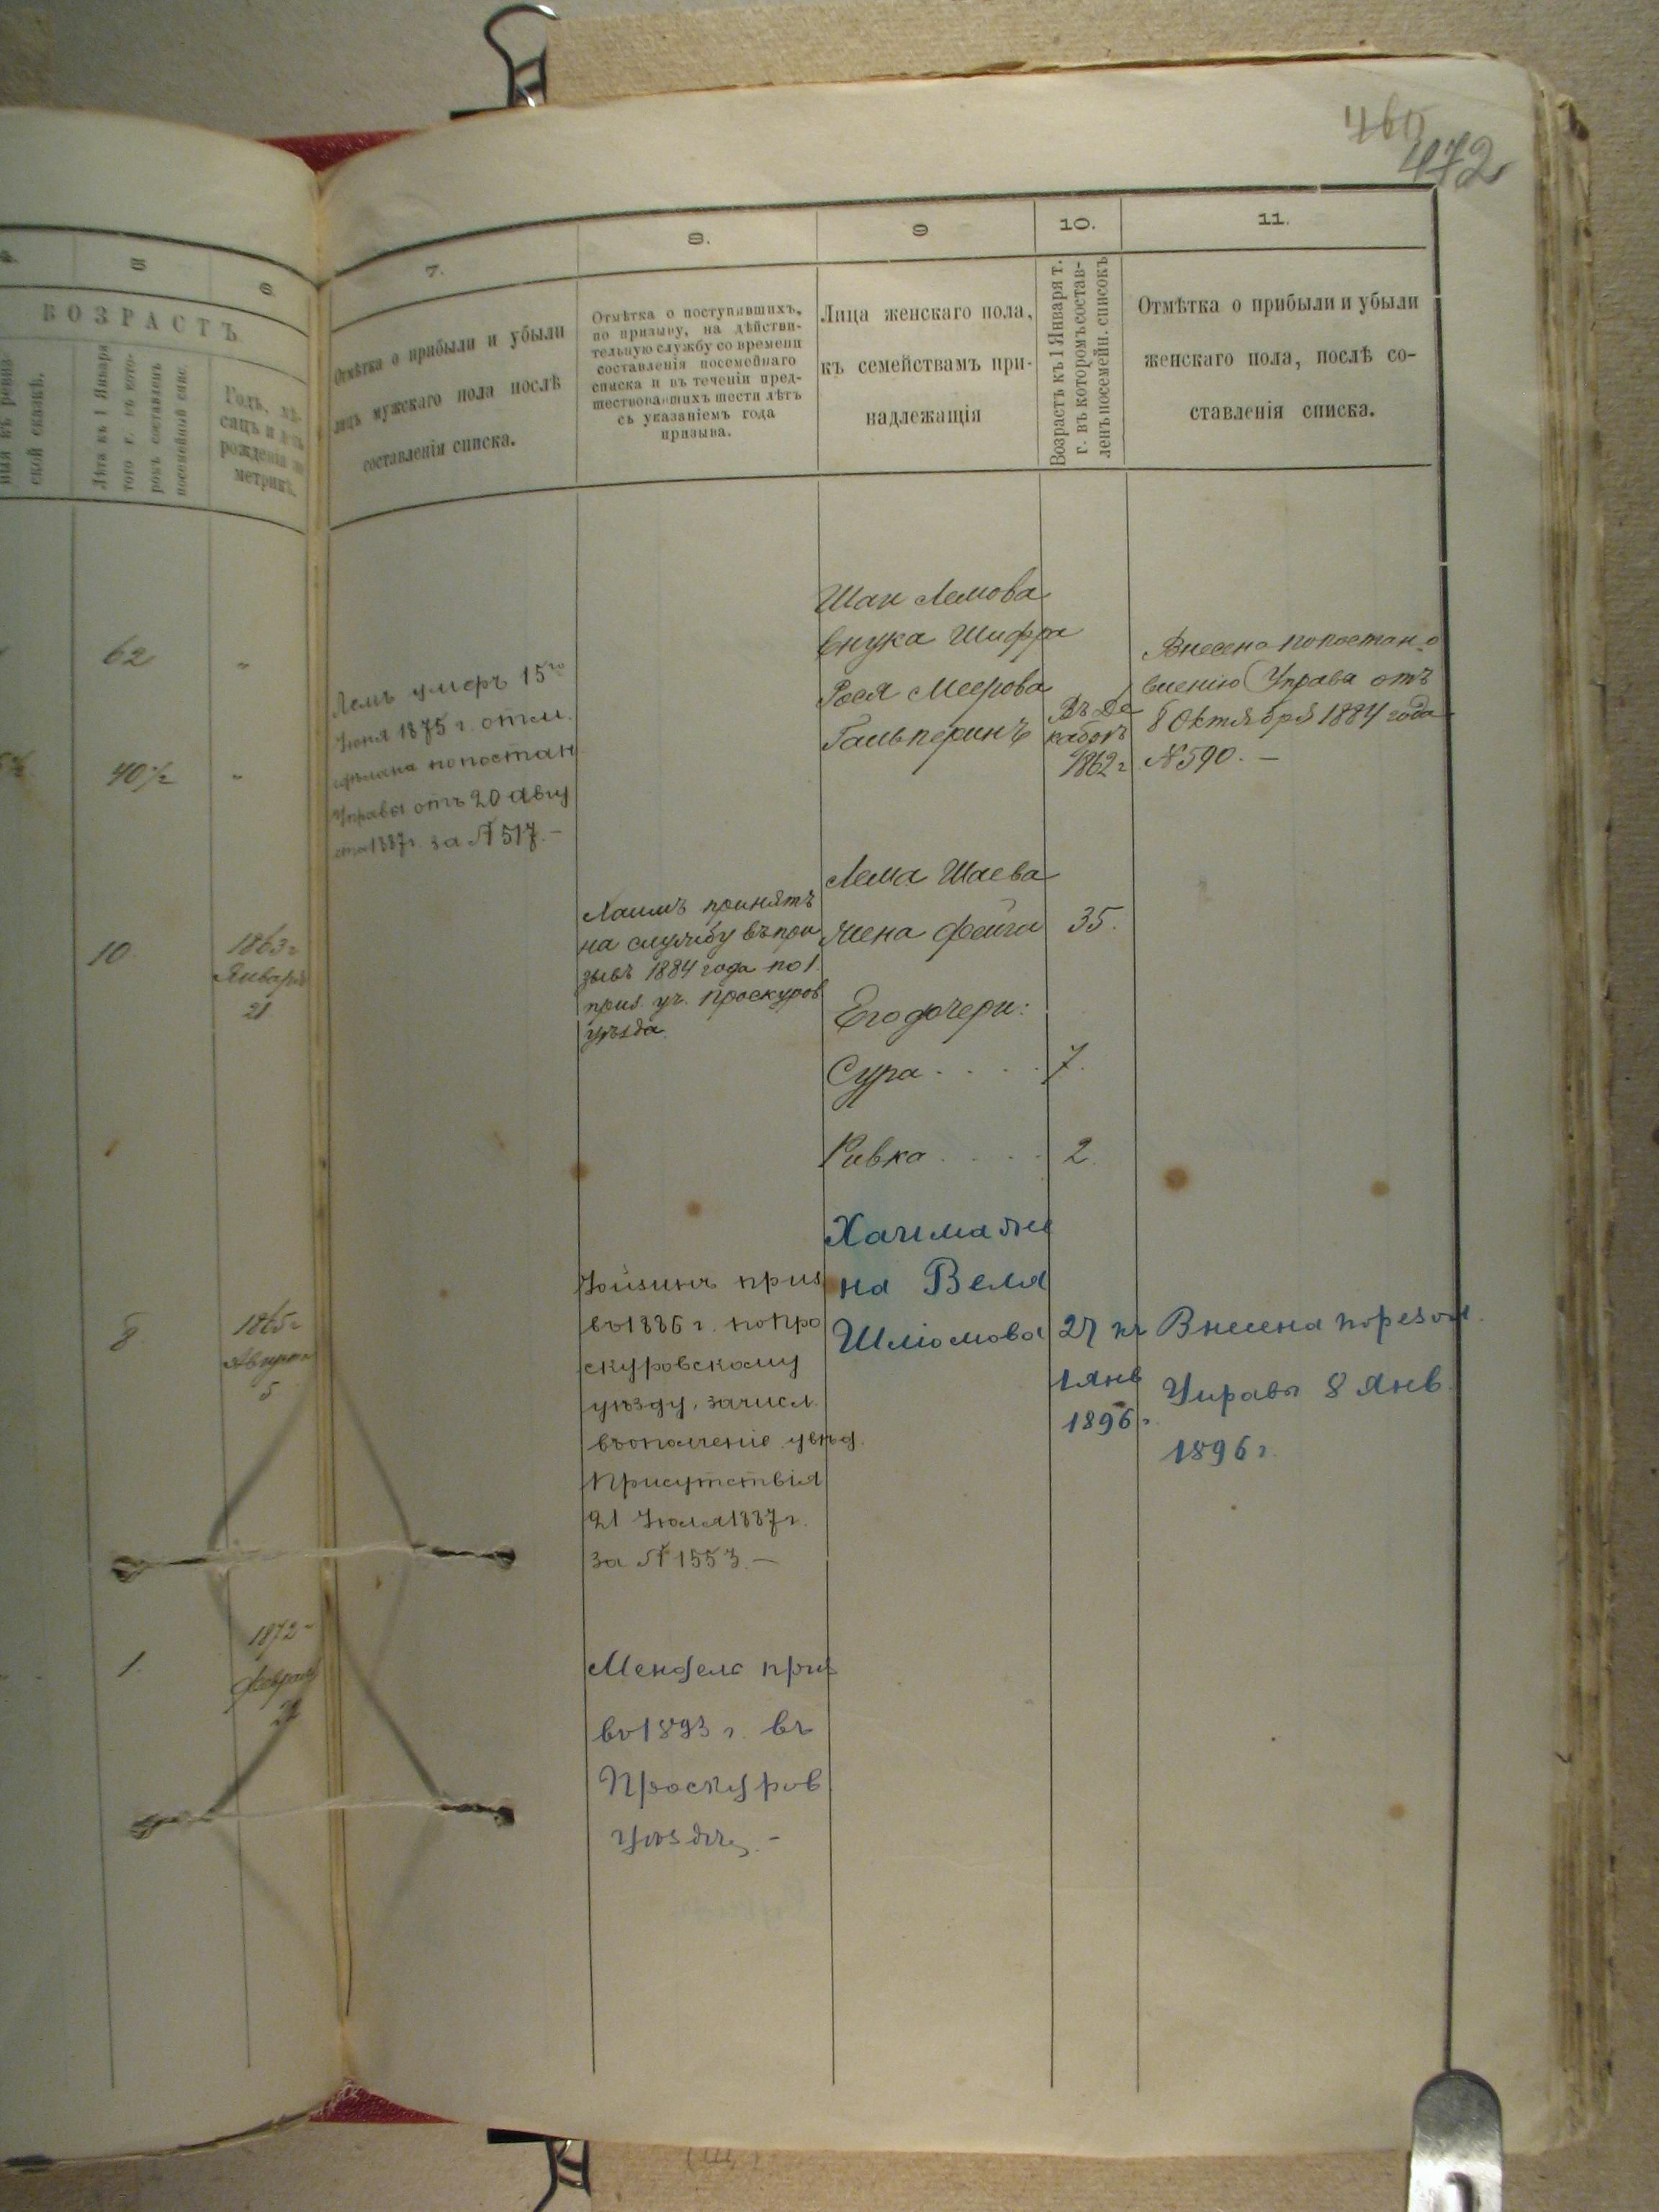 472
5
6
ВОЗРАСТЪ
ской сказкѣ.
Лѣта къ 1 Января
того г. въ кото-
ромъ составленъ
посемейный спис.
Годъ, мѣ-
сяцъ и день
рожденія по
метрикѣ.
62
"
40½
"
10
1863 г
Января
21
8
1865 г
Августа
5
1.
1872
Февраля
7.
Отмѣтка о прибыли и убыли
лицъ мужскаго пола послѣ
составленія списка.
Лемъ умеръ 15го
Іюня 1875 г. отм.
сдѣлана попостан
Управы отъ 20 Авгу
ста 1887 г. за № 517.—
8.
Отмѣтка о поступившихъ,
по призыву, на дѣйстви-
тельную службу со времени
составленія посемейнаго
списка и въ теченіи пред-
шествовавшихъ шести лѣтъ
съ указаніемъ года
призыва.
Хаимъ принятъ
на службу въ при
зывъ 1884 года по 1
приз. уч. Проскуров
уѣзда.
приз
въ 1886 г. по Про
скуровскому
уѣзду, зачисл.
въ ополченіе уѣзд.
Присутствія
21 Іюля 1887 г.
за № 1553.—
Мендель приз
въ 1893 г. въ
Проскуров
уѣздѣ.-
9
Лица женскаго пола,
къ семействамъ при-
надлежащія
Шаи Лемова
внука Шифра
Рося Меерова
Гальперинъ
Лема Шаева
жена Фейга
Его дочери:
Сура . . . .
Ривка . . . .
Хаима же
на Веля
Шліомова
10.
Возрастъ къ 1 Января т.
г. въ которомъ состав-
ленъ посемейн. списокъ
Въ Де
кабрѣ
1862 г
35.
7.
2.
27 къ
1 янв
1896 г.
11.
Отмѣтка о прибыли и убыли
женскаго пола, послѣ со-
ставленія списка.
Внесена по постано
вленію Управы отъ
8 Октября 1884 года
№ 590.—
Внесена по резол.
Управы 8 Янв
1896 г.